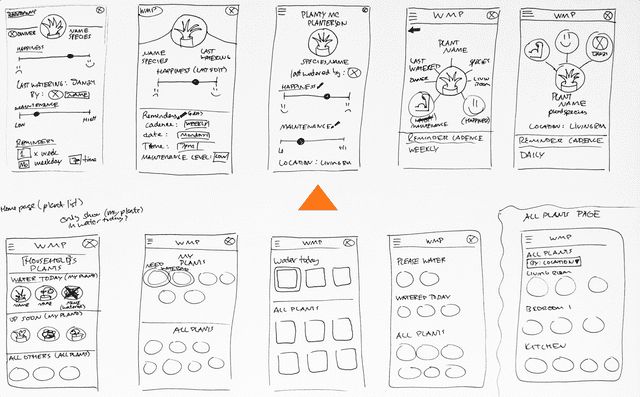 OWNER
NAME
SPECIES
HAPPINESS
LAST WATERING:
BY:
NAME
MAINTENANCE
LOW
HIGH
REMINDERS
1 x week
weekday
time
WMP
NAME
SPECIES
LAST
WATERING
HAPPINESS (LAST EDIT)
Reminders
cadence: WEEKLY
date: Mondays
Time: 7pm
MAINTENANCE LEVEL: LOW
PLANTY MC
PLANTERSON
SPECIES NAME
last watered by:
HAPPINESS
MAINTENANCE
LO
HI
LOCATION: LIVINGRM
WMP
PLANT
NAME
LAST
WATERED
SPECIES
OWNER
LIVING
ROOM
maintenance
(HAPPINESS)
REMINDER CADENCE
WEEKLY
WMP
PLANT
NAME
plant species
LOCATION: LIVINGRM
REMINDER CADENCE
DAILY
Home page (plant list)
only show (my plants)
in water today?
WMP
HOUSEHOLD'S
PLANTS
WATER TODAY (MY PLANTS)
NAME
NAME
NAME
(watered)
UP SOON (MY PLANTS)
ALL OTHERS (ALL PLANTS)
WMP
MY
PLANTS
NEED
WATERED
ALL PLANTS
WMP
Water today
ALL PLANTS
WMP
PLEASE WATER
WATERED TODAY
ALL PLANTS
ALL PLANTS PAGE
WMP
ALL PLANTS
BY: LOCATION
LIVING ROOM
BEDROOM 1
KITCHEN